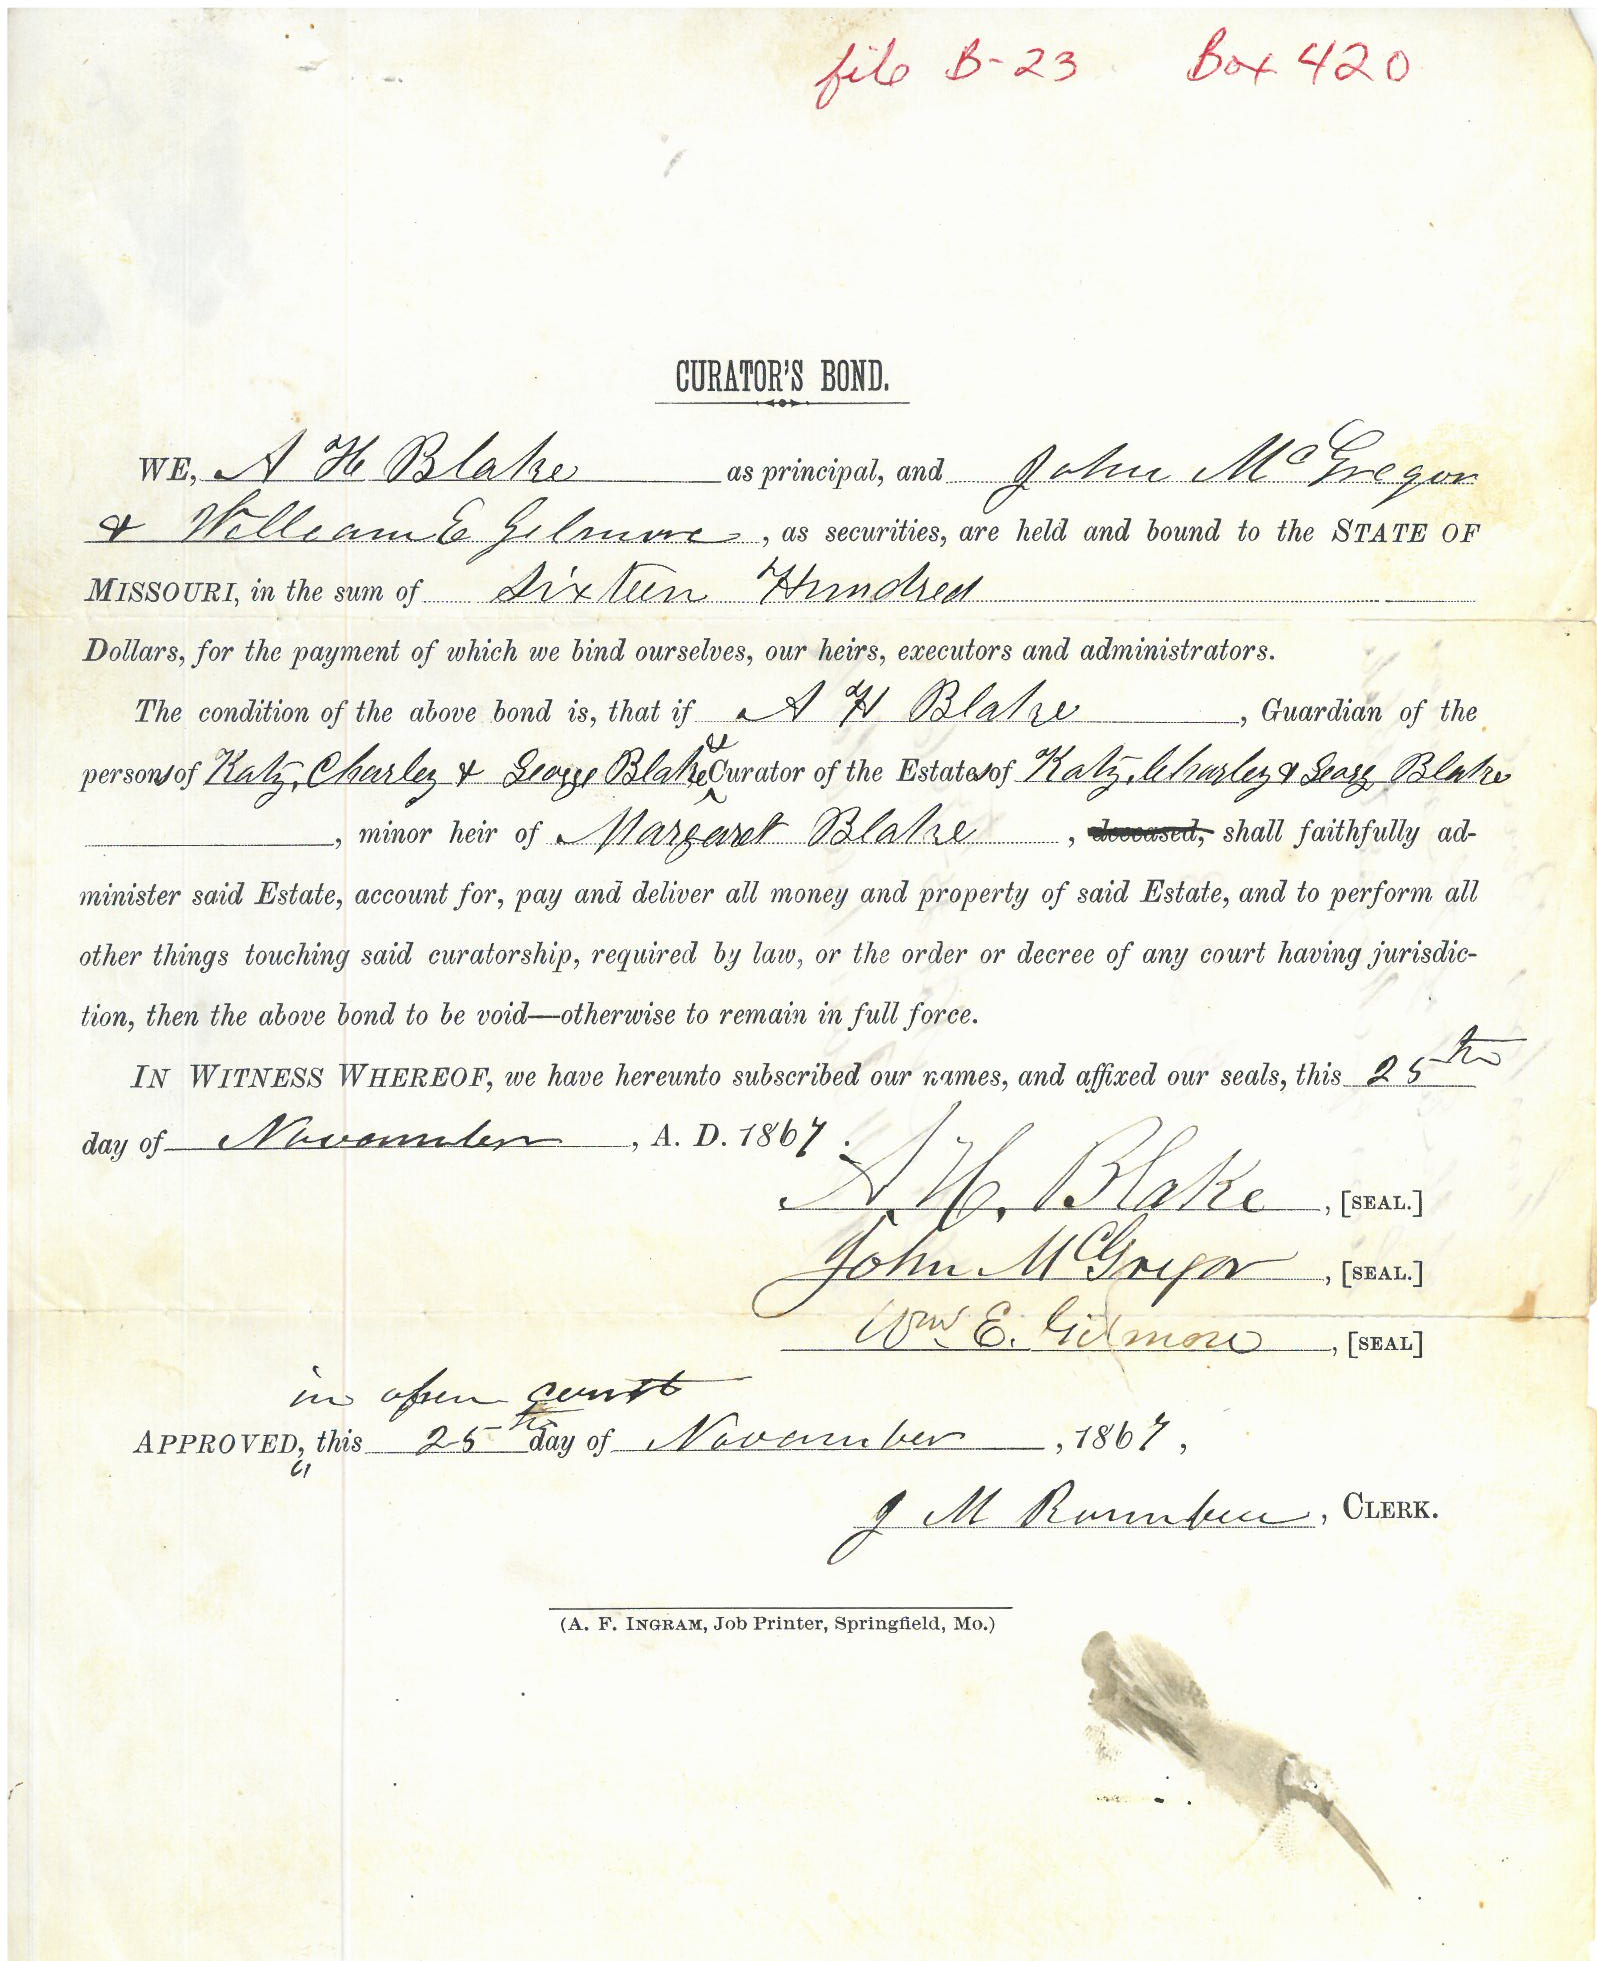 file B-23 Box 420
CURATOR'S BOND.
WE, A H Blake as principal, and John McGregor
& William E Gilmore, as securities, are held and bound to the STATE OF
MISSOURI, in the sum of Sixteen Hundred
Dollars, for the payment of which we bind ourselves, our heirs, executors and administrators.
The condition of the above bond is, that if A H Blake, Guardian of the
persons of Katy, Charley & George Blake & Curator of the Estates of Katy, Charley & George Blake
, minor heir of Margaret Blake, deceased, shall faithfully ad-
minister said Estate, account for, pay and deliver all money and property of said Estate, and to perform all
other things touching said curatorship, required by law, or the order or decree of any court having jurisdic-
tion, then the above bond to be void—otherwise to remain in full force.
IN WITNESS WHEREOF, we have hereunto subscribed our names, and affixed our seals, this 25th
day of November, A. D. 1867.
A H. Blake, [SEAL.]
John McGregor, [SEAL.]
Wm E. Gilmore, [SEAL]
in open court
APPROVED, this 25th day of November, 1867,
J M, CLERK.
(A. F. INGRAM, Job Printer, Springfield, Mo.)